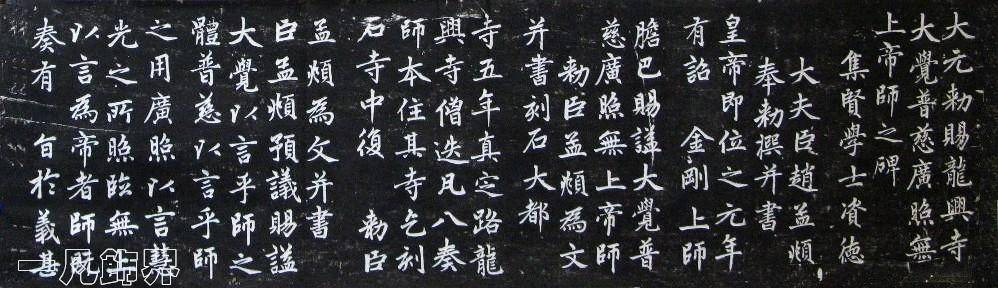 大元勅賜龍興寺
大覺普慈廣照無
上帝師之碑
集賢學士資德
大夫臣趙孟頫
奉勅撰并書
皇帝即位之元年
有詔 金剛上師
膽巴賜謚大覺普
慈廣照無上帝師
勅臣孟頫為文
并書刻石大都
寺五年真定路龍
興寺僧迭凡八奏
師本住其寺乞刻
石寺中復 勅臣
孟頫為文并書
臣孟頫預議賜謚
大覺以言乎師之
體普慈以言乎師
之用廣照以言慧
光之所照臨無上
以言為帝者師既
奏有 旨於義甚